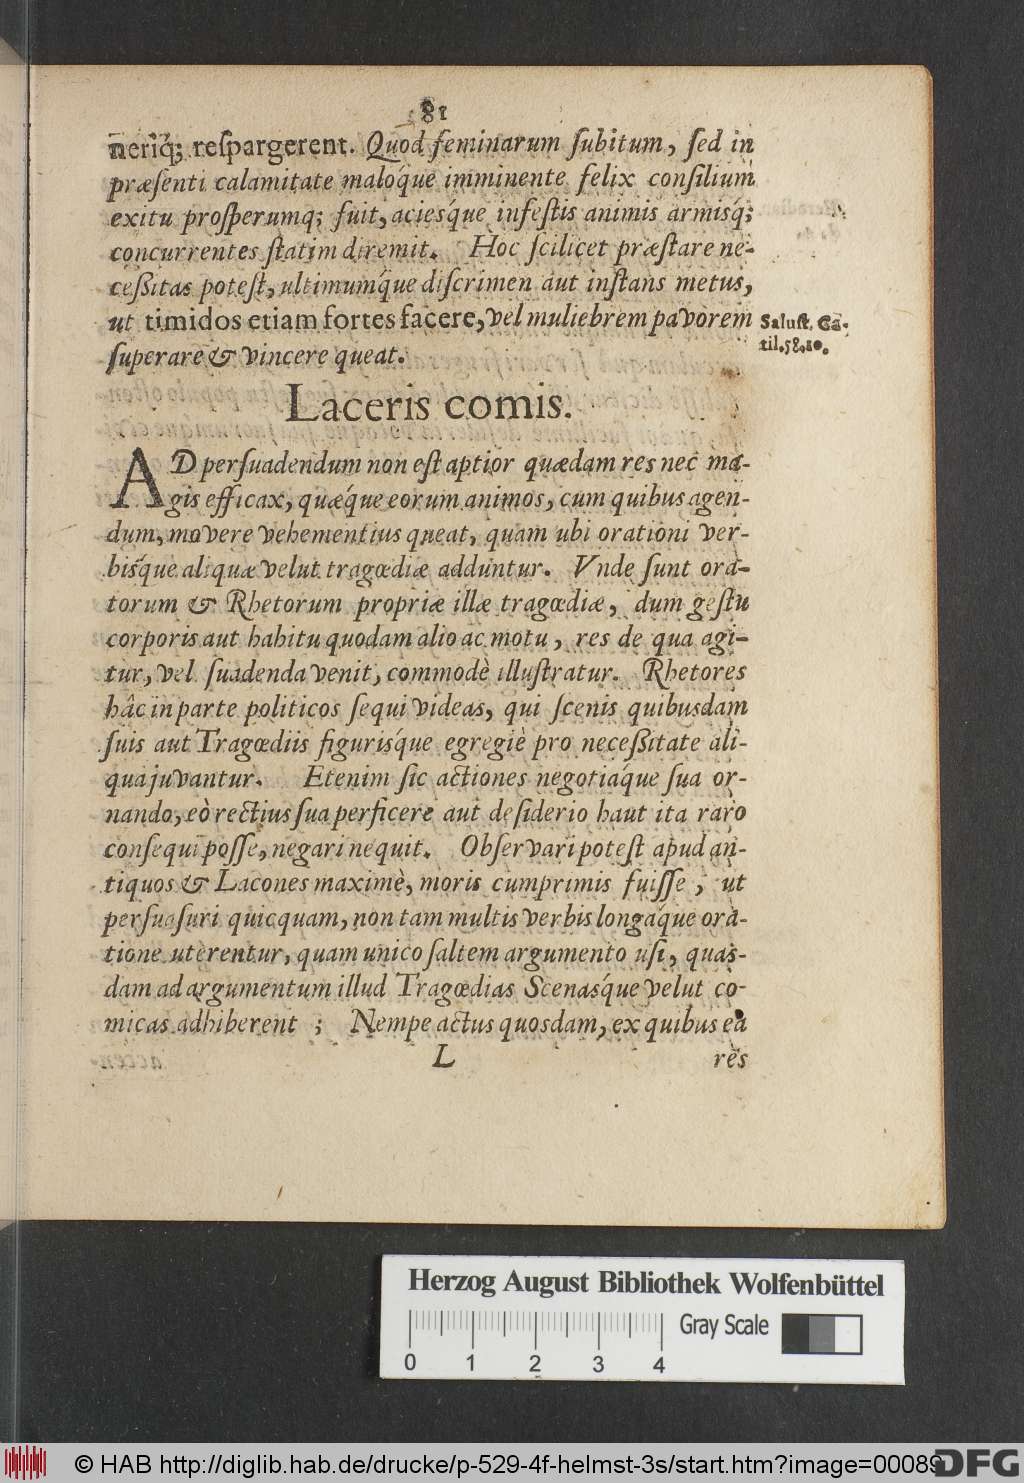 81
neriq́; reſpargerent. Quod feminarum ſubitum, ſed in
præſenti calamitate maloq́ue imminente felix conſilium
exitu proſperumq; fuit, acieśque infeſtis animis armiśq;
concurrentes ſtatim diremit. Hoc ſcilicet præſtare ne-
ceßitas poteſt, ultimumq́ue diſcrimen aut inſtans metus,
ut timidos etiam fortes facere, vel muliebrem pavorem
ſuperare & vincere queat.
Saluſt. Ca-
til. 58. 20.
Laceris comis.
AD perſuadendum non eſt aptior quædam res nec ma-
gis efficax, quæq́ue eorum animos, cum quibus agen-
dum, movere vehementius queat, quam ubi orationi ver-
biśque aliquæ velut tragœdiæ adduntur. Vnde ſunt ora-
torum & Rhetorum propriæ illæ tragœdiæ, dum geſtu
corporis aut habitu quodam alio ac motu, res de qua agi-
tur, vel ſuadenda venit, commodè illuſtratur. Rhetores
hâc in parte politicos ſequi videas, qui ſcenis quibusdam
ſuis aut Tragœdiis figuriśque egregiè pro neceßitate ali-
qua juvantur. Etenim ſic actiones negotiaq́ue ſua or-
nando, eò rectius ſua perficere aut deſiderio haut ita raro
conſequi poſſe, negari nequit. Obſervari poteſt apud an-
tiquos & Lacones maximè, moris cumprimis fuiſſe, ut
perſuaſuri quicquam, non tam multis verbis longaq́ue ora-
tione uterentur, quam unico ſaltem argumento uſi, quas-
dam ad argumentum illud Tragœdias Scenaśque velut co-
micas adhiberent ; Nempe actus quosdam, ex quibus ea
L
res
Herzog August Bibliothek Wolfenbüttel
Gray Scale
0 1 2 3 4
© HAB http://diglib.hab.de/drucke/p-529-4f-helmst-3s/start.htm?image=00089
DFG